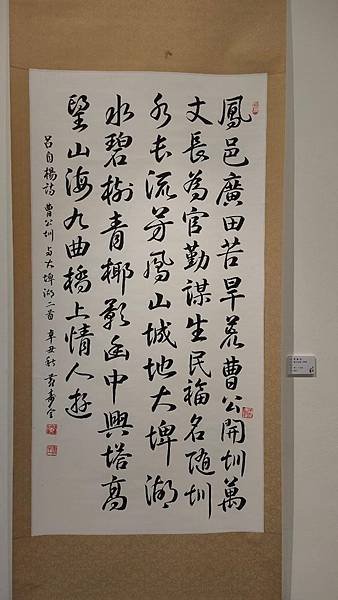 鳳邑廣田苦旱荒曹公開圳萬
丈長為官勤謀生民福名隨圳
水長流芳鳳山城地大埤湖
水碧樹青椰影幽中興塔高
望山海九曲橋上情人遊
呂自揚詩 曹公圳与大埤湖二首 辛丑秋